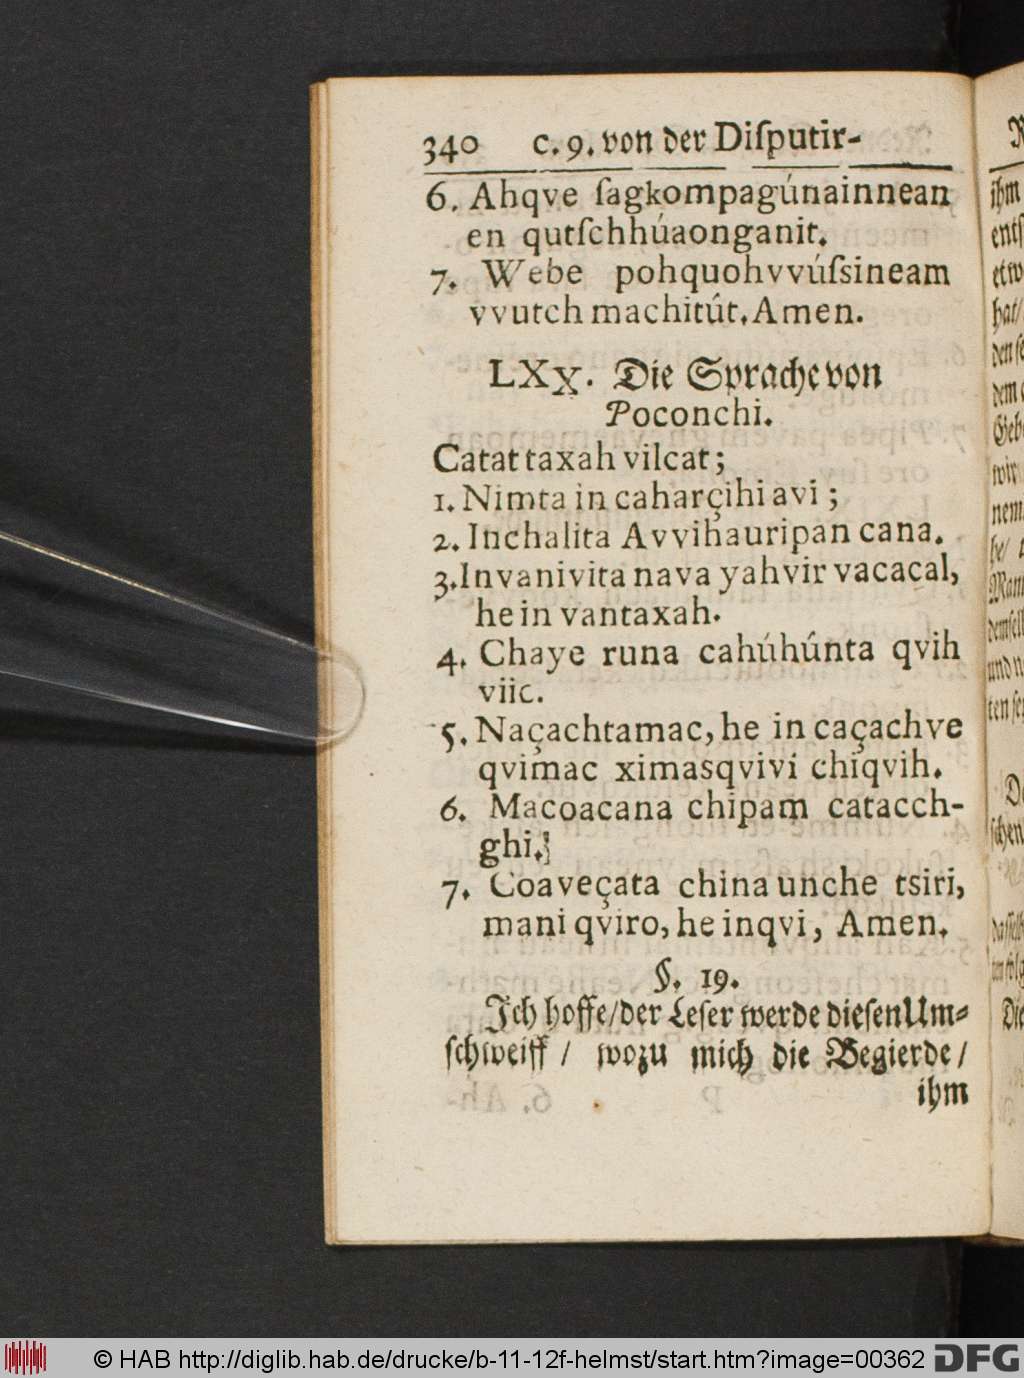 340 c. 9. von der Diſputir-
6. Ahqve ſagkompagúnainnean
en qutſchhúaonganit.
7. Webe pohquohvvúſsineam
vvutch machitút. Amen.
LXX. Die Sprache von
Poconchi.
Catat taxah vilcat;
1. Nimta in caharçihi avi;
2. Inchalita Avvihauripan cana.
3. Invanivita nava yahvir vacacal,
he in vantaxah.
4. Chaye runa cahúhúnta qvih
viic.
5. Naçachtamac, he in caçachve
qvimac ximasqvivi chiqvih.
6. Macoacana chipam catacch-
ghi.
7. Coaveçata china unche tsiri,
mani qviro, he inqvi, Amen.
§. 19.
Ich hoffe/ der Leſer werde dieſen Um-
ſchweiff / wozu mich die Begierde /
ihm
© HAB http://diglib.hab.de/drucke/b-11-12f-helmst/start.htm?image=00362 DFG